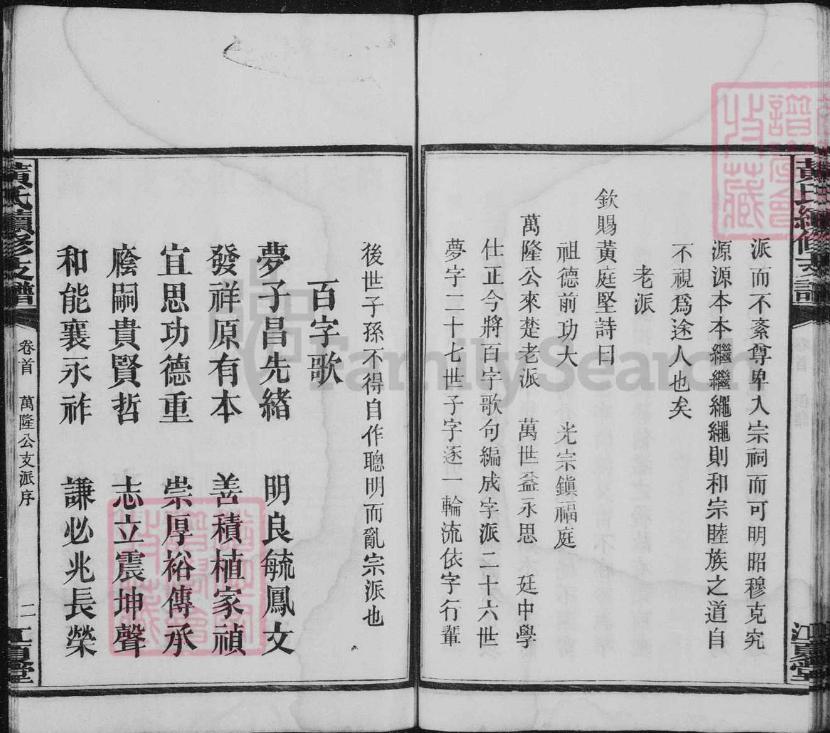 派而不紊尊卑入宗祠而可明昭穆克究
源源本本繼繼繩繩則和宗睦族之道自
不視爲途人也矣
老派
欽賜黃庭堅詩曰
祖德前功大 光宗鎮福庭
萬隆公來楚老派 萬世益永思 廷中學
仕正今將百字歌句編成字派二十六世
夢字二十七世子字逐一輪流依字行輩
後世子孫不得自作聰明而亂宗派也
百字歌
夢子昌先緒 明良毓鳳文
發祥原有本 善積植家禎
宜思功德重 崇厚裕傳承
廕嗣貴賢哲 志立震坤聲
和能襄永祚 謙必兆長榮
黃氏續修支譜 卷首 萬隆公支派序 二 江夏堂
黃氏續修支譜 卷首 江夏堂
FamilySearch